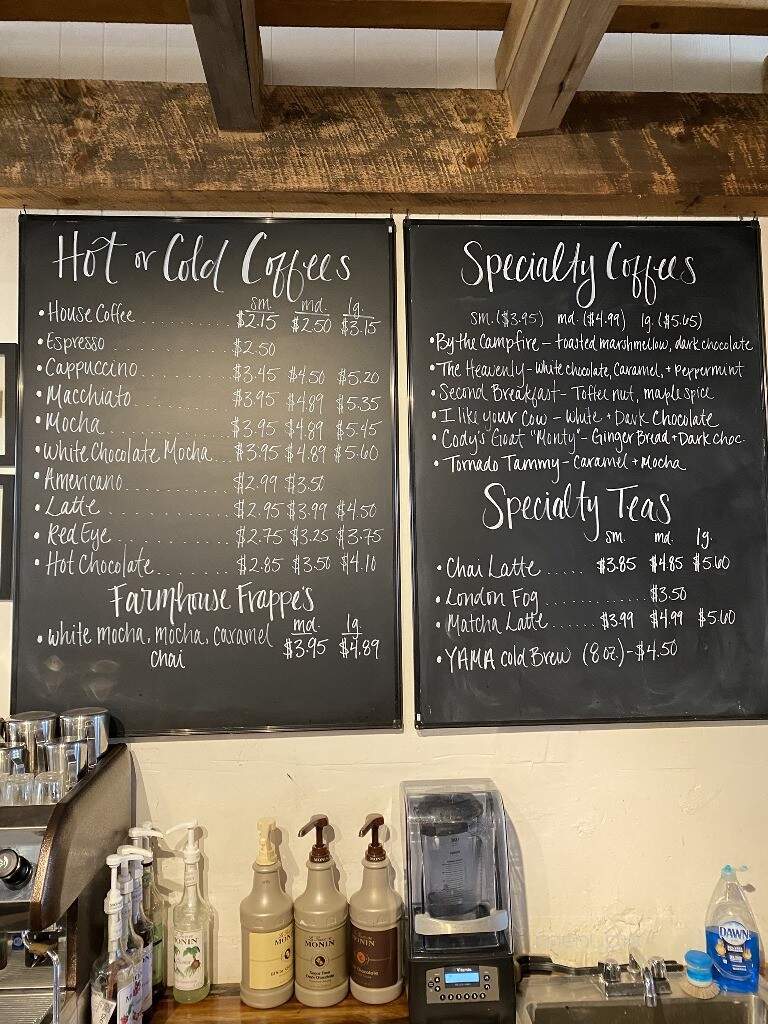 Hot or Cold Coffees
sm. md. lg.
• House Coffee ........... $2.15 $2.50 $3.15
• Espresso ........... $2.50
• Cappuccino ........... $3.45 $4.50 $5.20
• Macchiato ........... $3.95 $4.89 $5.35
• Mocha ........... $3.95 $4.89 $5.45
• White Chocolate Mocha ... $3.95 $4.89 $5.60
• Americano ........... $2.99 $3.50
• Latte ........... $2.95 $3.99 $4.50
• Red Eye ........... $2.75 $3.25 $3.75
• Hot Chocolate ........... $2.85 $3.50 $4.10
Farmhouse Frappe's
md. lg.
• white mocha, mocha, caramel $3.95 $4.89
chai
Specialty Coffees
sm. ($3.95) md. ($4.99) lg. ($5.65)
• By the Campfire – toasted marshmellow, dark chocolate
• The Heavenly – white chocolate, Caramel, + Peppermint
• Second Breakfast – Toffee nut, maple spice
• I like your Cow – White + Dark Chocolate
• Cody's Goat "Monty" – Ginger Bread + Dark Choc.
• Tornado Tammy – Caramel + Mocha
Specialty Teas
sm. md. lg.
• Chai Latte ...... $3.85 $4.85 $5.60
• London Fog ........... $3.50
• Matcha Latte ...... $3.99 $4.99 $5.60
• YAMA cold Brew (8 oz.) – $4.50
MONIN
MONIN
MONIN
MONIN
Dark Chocolate
Chocolate
Vitamix
DAWN